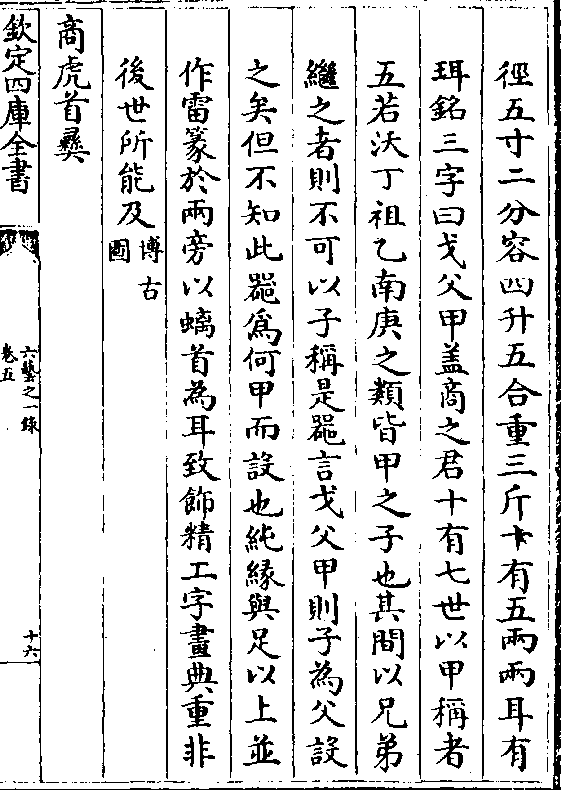 徑五寸二分容四升五合重三斤十有五兩兩耳有
珥銘三字曰戈父甲盖商之君十有七世以甲稱者
五若沃丁祖乙南庚之類皆甲之子也其間以兄弟
繼之者則不可以子稱是噐言戈父甲則子為父設
之矣但不知此噐為何甲而設也純緣與足以上並
作雷篆於兩旁以螭首為耳致飾精工字畫典重非
後世所能及博古圖
商虎首彝
欽定四庫全書
六藝之一録
卷五
十六